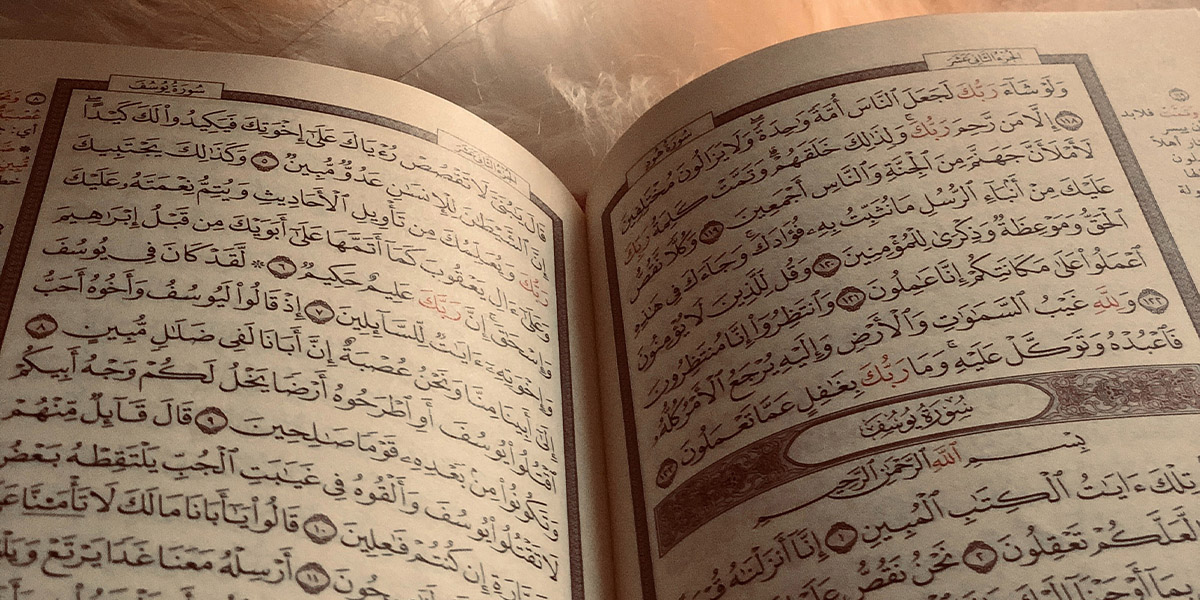 الجزء الثاني عشر
سورة هود
وَلَوْ شَآءَ رَبُّكَ لَجَعَلَ ٱلنَّاسَ أُمَّةً وَٰحِدَةً وَلَا يَزَالُونَ مُخْتَلِفِينَ
١١٨ إِلَّا مَن رَّحِمَ رَبُّكَ وَلِذَٰلِكَ خَلَقَهُمْ وَتَمَّتْ كَلِمَةُ رَبِّكَ
لَأَمْلَأَنَّ جَهَنَّمَ مِنَ ٱلْجِنَّةِ وَٱلنَّاسِ أَجْمَعِينَ ١١٩ وَكُلًّا نَّقُصُّ
عَلَيْكَ مِنْ أَنۢبَآءِ ٱلرُّسُلِ مَا نُثَبِّتُ بِهِۦ فُؤَادَكَ وَجَآءَكَ فِى هَٰذِهِ
ٱلْحَقُّ وَمَوْعِظَةٌ وَذِكْرَىٰ لِلْمُؤْمِنِينَ ١٢٠ وَقُل لِّلَّذِينَ لَا يُؤْمِنُونَ
ٱعْمَلُوا۟ عَلَىٰ مَكَانَتِكُمْ إِنَّا عَٰمِلُونَ ١٢١ وَٱنتَظِرُوٓا۟ إِنَّا مُنتَظِرُونَ
١٢٢ وَلِلَّهِ غَيْبُ ٱلسَّمَٰوَٰتِ وَٱلْأَرْضِ وَإِلَيْهِ يُرْجَعُ ٱلْأَمْرُ كُلُّهُۥ
فَٱعْبُدْهُ وَتَوَكَّلْ عَلَيْهِ وَمَا رَبُّكَ بِغَٰفِلٍ عَمَّا تَعْمَلُونَ ١٢٣
سُورَةُ يُوسُفَ
بِسْمِ ٱللَّهِ ٱلرَّحْمَٰنِ ٱلرَّحِيمِ
تِلْكَ ءَايَٰتُ ٱلْكِتَٰبِ ٱلْمُبِينِ ١ إِنَّآ أَنزَلْنَٰهُ
لَّعَلَّكُمْ تَعْقِلُونَ ٢ نَحْنُ نَقُصُّ
بِمَآ أَوْحَيْنَآ إِلَيْكَ
سُورَةُ يُوسُفَ
الجزء الثاني عشر
قَالَ يَٰبُنَىَّ لَا تَقْصُصْ رُءْيَاكَ عَلَىٰٓ إِخْوَتِكَ فَيَكِيدُوا۟ لَكَ كَيْدًا
إِنَّ ٱلشَّيْطَٰنَ لِلْإِنسَٰنِ عَدُوٌّ مُّبِينٌ ٥ وَكَذَٰلِكَ يَجْتَبِيكَ
رَبُّكَ وَيُعَلِّمُكَ مِن تَأْوِيلِ ٱلْأَحَادِيثِ وَيُتِمُّ نِعْمَتَهُۥ عَلَيْكَ
وَعَلَىٰٓ ءَالِ يَعْقُوبَ كَمَآ أَتَمَّهَا عَلَىٰٓ أَبَوَيْكَ مِن قَبْلُ إِبْرَٰهِيمَ
وَإِسْحَٰقَ إِنَّ رَبَّكَ عَلِيمٌ حَكِيمٌ ٦ * لَّقَدْ كَانَ فِى يُوسُفَ
وَإِخْوَتِهِۦٓ ءَايَٰتٌ لِّلسَّآئِلِينَ ٧ إِذْ قَالُوا۟ لَيُوسُفُ وَأَخُوهُ أَحَبُّ
إِلَىٰٓ أَبِينَا مِنَّا وَنَحْنُ عُصْبَةٌ إِنَّ أَبَانَا لَفِى ضَلَٰلٍ مُّبِينٍ ٨
ٱقْتُلُوا۟ يُوسُفَ أَوِ ٱطْرَحُوهُ أَرْضًا يَخْلُ لَكُمْ وَجْهُ أَبِيكُمْ
وَتَكُونُوا۟ مِنۢ بَعْدِهِۦ قَوْمًا صَٰلِحِينَ ٩ قَالَ قَآئِلٌ مِّنْهُمْ
لَا تَقْتُلُوا۟ يُوسُفَ وَأَلْقُوهُ فِى غَيَٰبَتِ ٱلْجُبِّ يَلْتَقِطْهُ بَعْضُ
ٱلسَّيَّارَةِ إِن كُنتُمْ فَٰعِلِينَ ١٠ قَالُوا۟ يَٰٓأَبَانَا مَالَكَ لَا تَأْمَ۫نَّا
١١ أَرْسِلْهُ مَعَنَا غَدًا يَرْتَعْ